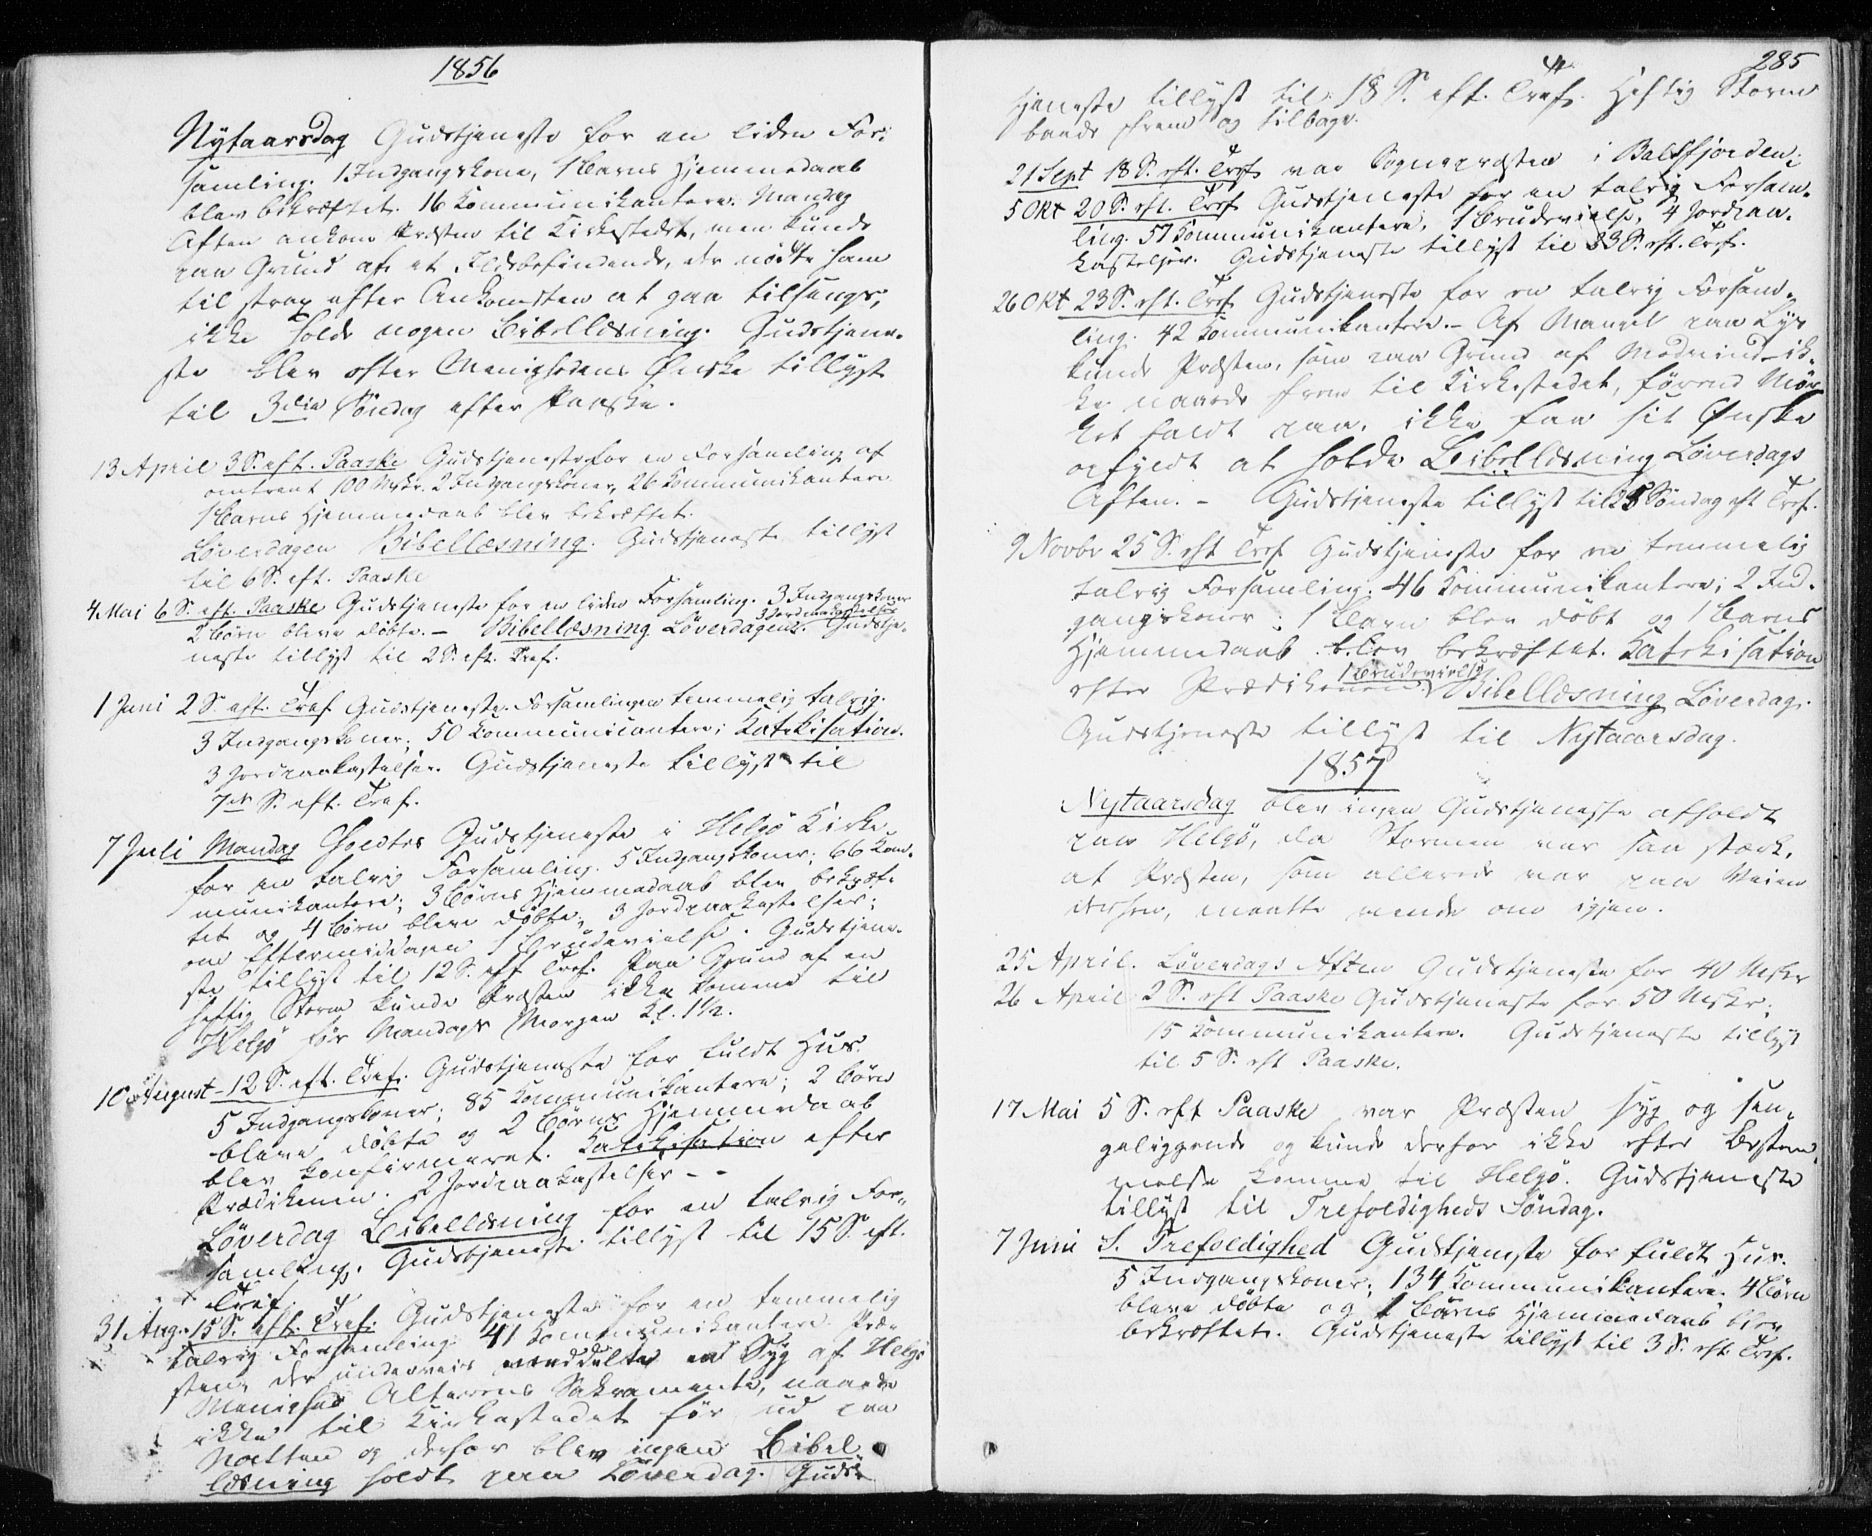 1856
Nytaarsdag Gudstjeneste for en liden For-
samling. 1 Indgangskone, 1 Barns Hjemmedaab
blev bekræftet. 16 Kommunikantere. Mandag
Aften ankom Præsten til Kirkestedet, men kunde
paa Grund af et Ildebefindende, der nødte ham
til strax efter Ankomsten at gaa tilsengs,
ikke holde nogen Bibellæsning. Gudstjene-
ste blev efter Menighedens Ønske tillyst
til 3die Søndag efter Paaske.
13 April 3 S. eft. Paaske Gudstjeneste for en Forsamling af
omtrent 100 Msk. 2 Indgangskoner, 26 Kommunikantere
1 Barns Hjemmedaab blev bekræftet.
Løverdagen Bibellæsning. Gudstjeneste tillyst
til 6 S. eft. Paaske
4 Mai 6 S. eft. Paaske Gudstjeneste for en liden Forsamling. 3 Indgangskoner
3 Jordpaakastelser
2 Børn bleve døbte. – Bibellæsning Løverdagen. Gudstje-
neste tillyst til 2 S. eft. Tref.
1 Juni 2 S. eft. Tref Gudstjeneste. Forsamlingen temmelig talrig.
3 Indgangskoner; 50 Kommunicantere; Katekisation.
3 Jordpaakastelser. Gudstjeneste tillyst til
7de S. eft. Tref.
7 Juli Mandag Holdtes Gudstjeneste i Helgø Kirke
for en talrig Forsamling. 5 Indgangskoner; 66 Kom-
munikantere; 3 Børns Hjemmedaab blev bekræf-
tet og 4 Børn bleve døbte; 3 Jordpaakastelser;
om Eftermiddagen 1 Brudevielse. Gudstjene-
ste tillyst til 12 S. eft Tref. Paa Grund af en
heftig Storm kunde Præsten ikke komme til
Helgø før Mandags Morgen Kl. 1½.
10 August – 12 S. eft. Tref. Gudstjeneste for fuldt Hus.
5 Indgangskoner; 85 Kommunikantere; 2 Børn
bleve døbte og 2 Børns Hjemmedaab
blev konfirmeret. Katekisation efter
Prædikenen. 2 Jordpaakastelser – -
Løverdag Bibellæsning for en talrig For-
samling. Gudstjeneste tillyst til 15 S. eft.
Tref.
31 Aug. 15 S. eft. Tref. Gudstjeneste for en temmelig
talrig Forsamling 41 Kommunikantere Præ-
sten, der underveis meddelte en Syg af Helgø
Menighed Alterens Sakramente, naaede
ikke til Kirkestedet før ud paa
Natten og derfor blev ingen Bibel-
læsning holdt paa Løverdag. Guds-
285
tjeneste tillyst til 18 S. eft. Tref. Heftig Storm
baade frem og tilbage.
21 Sept 18 S. eft. Tref var Sognepræsten i Balsfjorden;
5 Okt 20 S. eft. Tref Gudstjeneste for en talrig Forsam-
ling. 57 Kommunikantere, 1 Brudevielse, 4 Jordpaa-
kastelser. Gudstjeneste tillyst til 23 S. eft. Tref.
26 Okt 23 S. eft. Tref Gudstjeneste for en talrig Forsam-
ling. 42 Kommunikantere. – Af Mangel paa Lys
kunde Præsten, som paa Grund af Modvind ik-
ke naaede frem til Kirkestedet, førend Mør-
ket faldt paa, ikke faa sit Ønske
opfyldt at holde Bibellæsning Løverdags
Aften. – Gudstjeneste tillyst til 25 Søndag eft Tref.
9 Novbr 25 S. eft Tref Gudstjeneste for en temmelig
talrig Forsamling; 46 Kommunikantere; 2 Ind-
gangskoner; 1 Barn blev døbt og 1 Barns
Hjemmedaab blev bekræftet. Katekisation
1 Brudevielse
efter Prædikenen. Bibellæsning Løverdag.
Gudstjeneste tillyst til Nytaarsdag.
1857
Nytaarsdag blev ingen Gudstjeneste afholdt
paa Helgø, da Stormen var saa stærk,
at Præsten, som allerede var paa Veien
derhen, maatte vende om igjen.
25 April. Løverdags Aften Gudstjeneste for 40 Msker
26 April 2 S. eft Paaske Gudstjeneste for 50 Msker;
15 Kommunikantere. Gudstjeneste tillyst
til 5 S. eft Paaske.
17 Mai 5 S. eft Paaske var Præsten syg og sen-
geliggende og kunde derfor ikke efter Bestem-
melse komme til Helgø. Gudstjeneste
tillyst til Trefoldigheds Søndag.
7 Juni S. Trefoldighed Gudstjeneste for fuldt Hus.
5 Indgangskoner; 134 Kommunikantere. 4 Børn
bleve døbte og 1 Barns Hjemmedaab blev
bekræftet. Gudstjeneste tillyst til 3 S. eft. Tref.